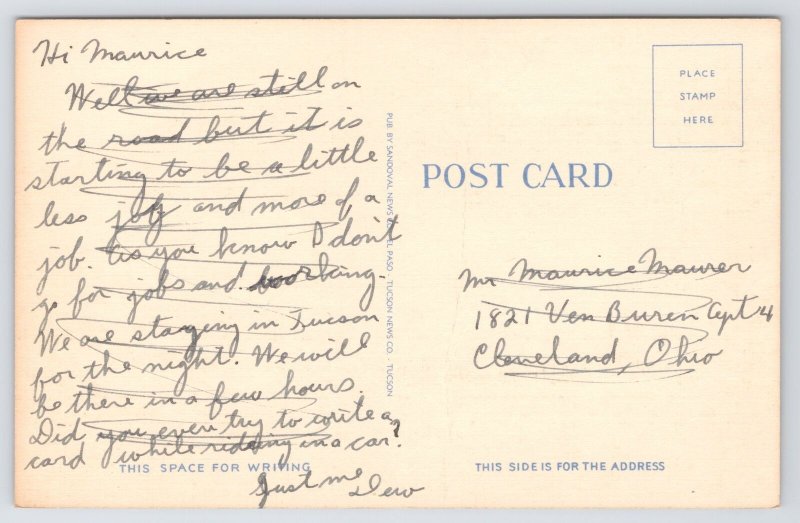 Hi Maurice
Well we are still on
the road but it is
starting to be a little
less joy and more of a
job. As you know I don't
go for jobs and working.
We are staying in Tucson
for the night. We will
be there in a few hours.
Did you ever try to write a
card while ridding in a car?
Just me
Dew
THIS SPACE FOR WRITING
PUB. BY SANDOVAL NEWS EL PASO, TUCSON NEWS CO. - TUCSON
PLACE
STAMP
HERE
POST CARD
Mr Maurice Maurer
1821 Van Buren Apt 4
Cleveland, Ohio
THIS SIDE IS FOR THE ADDRESS